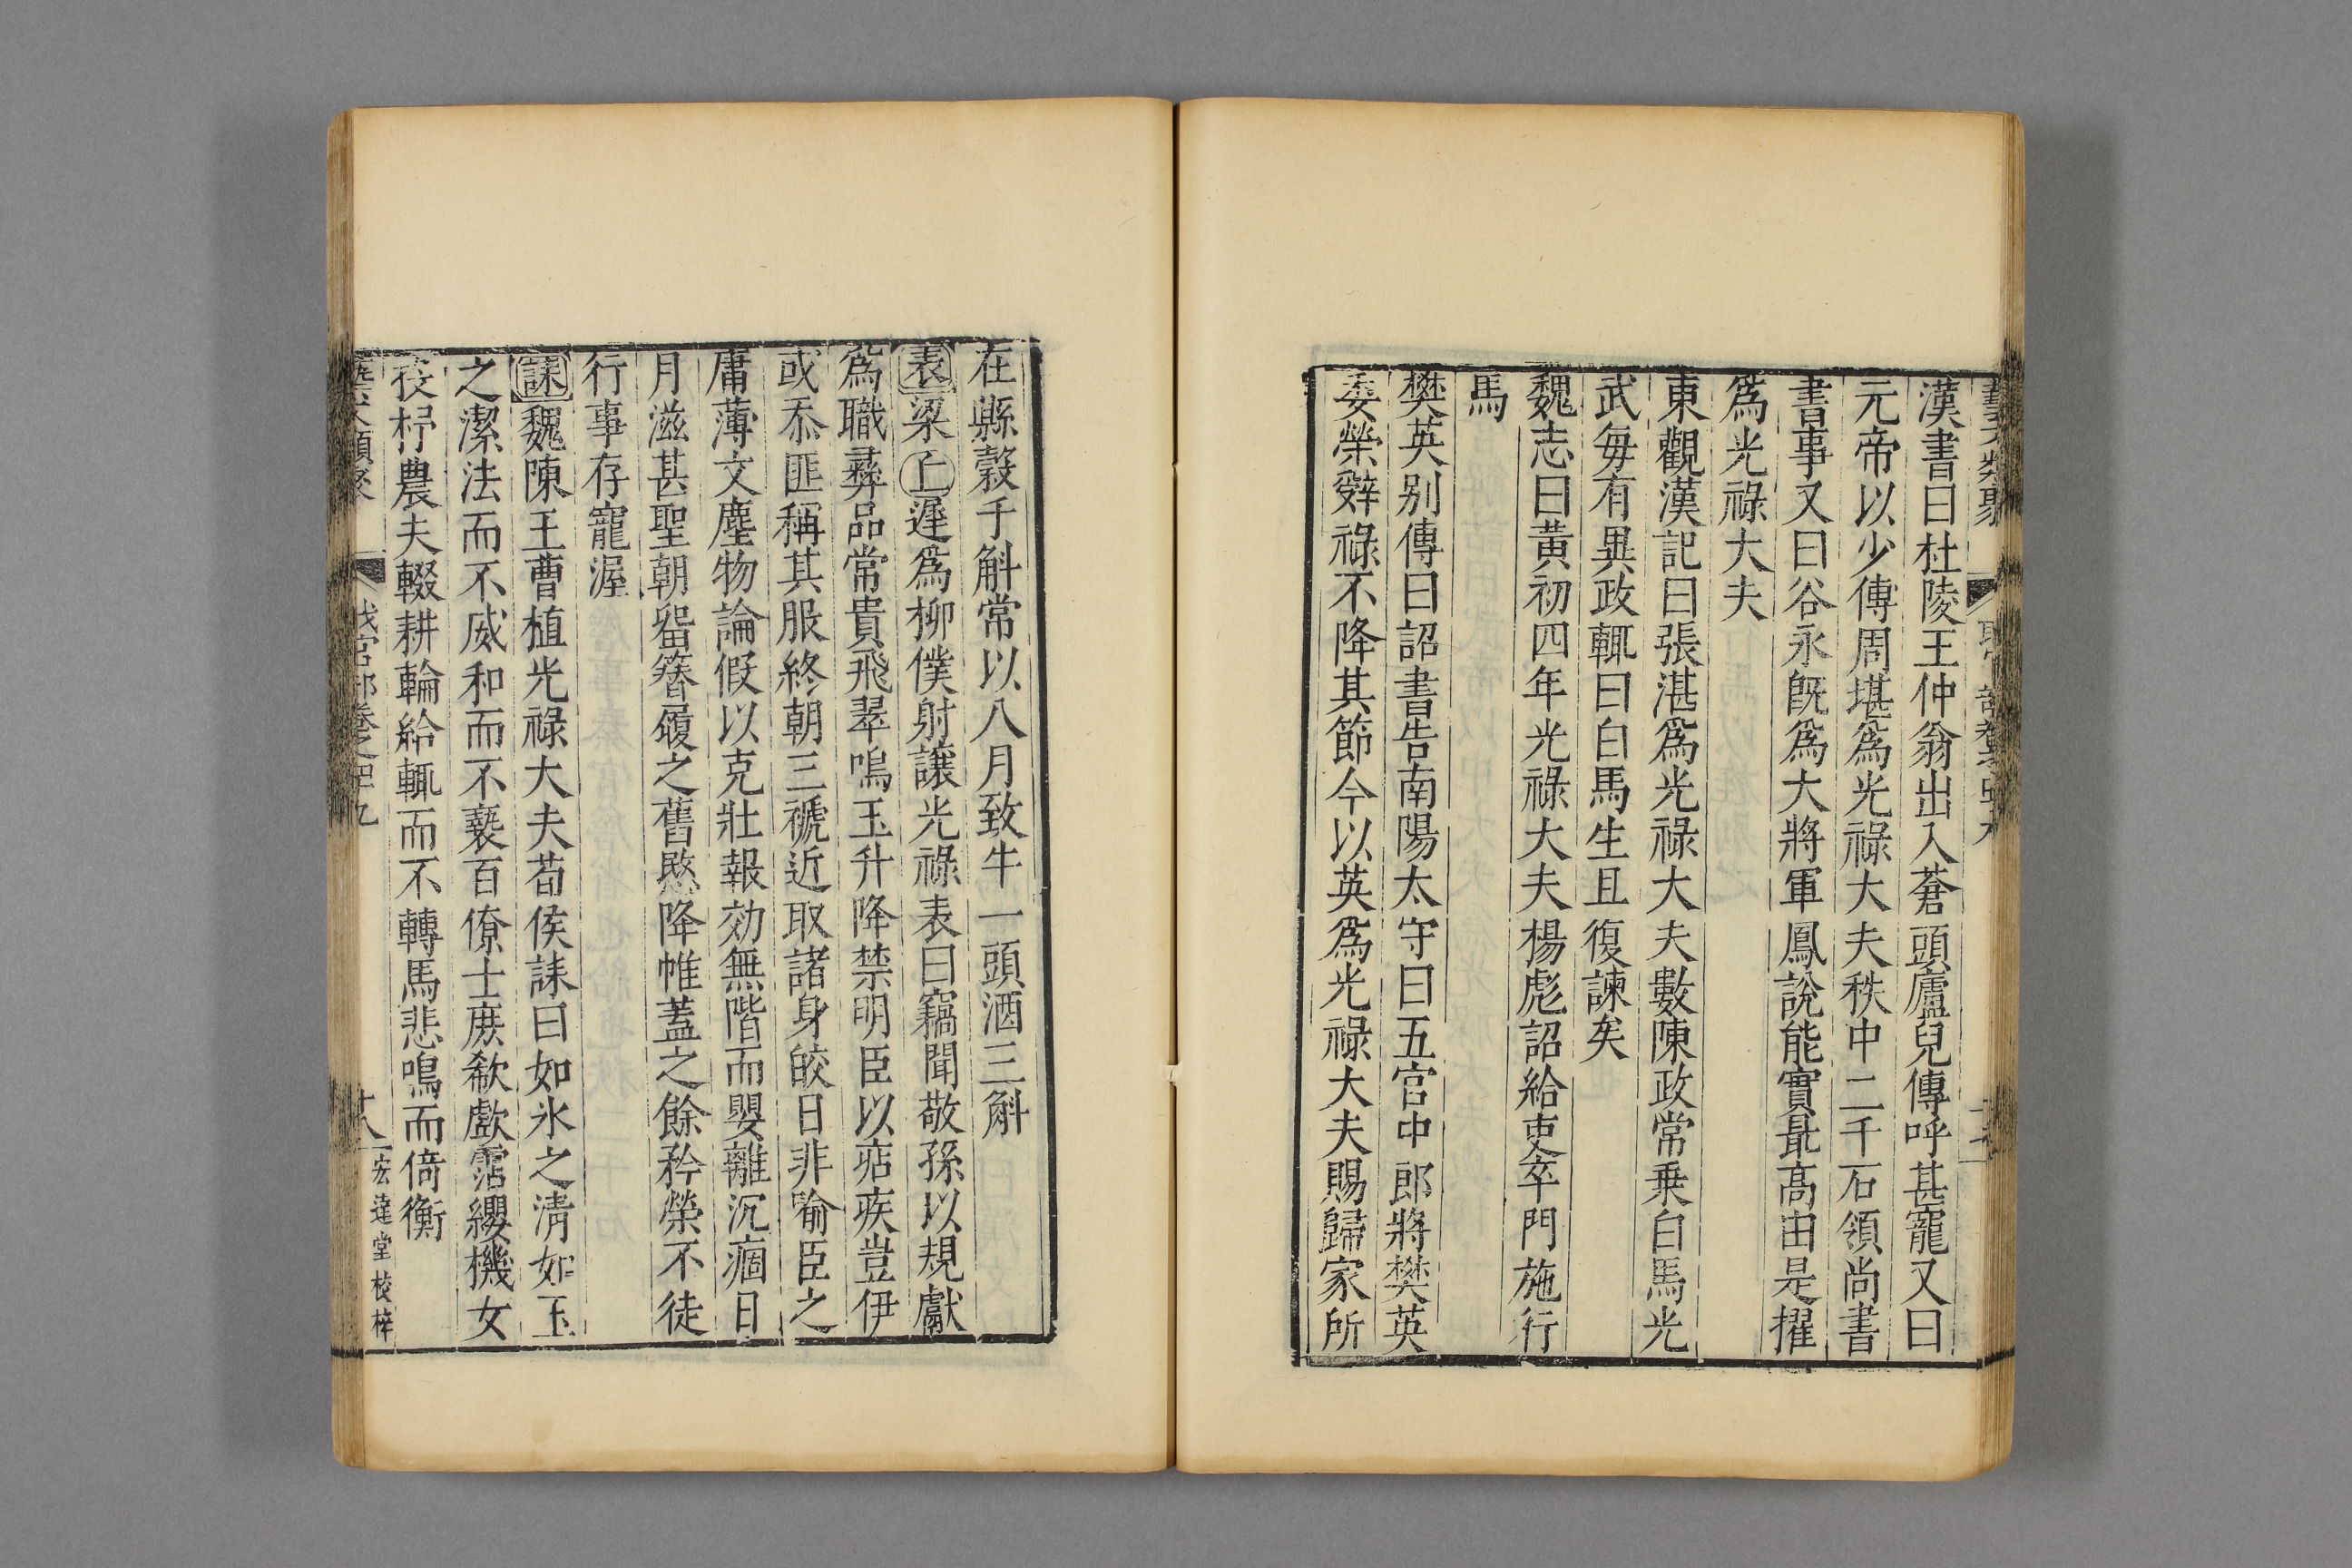 漢書曰杜陵王仲翁出入蒼頭廬兒傳呼甚寵又曰
元帝以少傅周堪爲光祿大夫秩中二千石領尚書
書事又曰谷永旣爲大將軍鳳說能實最高由是擢
爲光祿大夫
東觀漢記曰張湛爲光祿大夫數陳政常乗白馬光
武每有異政輒曰白馬生且復諫矣
魏志曰黃初四年光祿大夫楊彪詔給吏卒門施行
馬
樊英别傳曰詔書告南陽太守曰五官中郎將樊英
委榮辤祿不降其節今以英爲光祿大夫賜歸家所
在縣穀千斛常以八月致牛一頭酒三斛
表梁丘遲爲柳僕射讓光祿表曰竊聞敬孫以規獻
爲職彞品常貴飛翠鳴玉升降禁明臣以痁疾豈伊
或忝匪稱其服終朝三褫近取諸身皎日非喻臣之
庸薄文塵物論假以克壯報効無階而嬰離沉痼日
月滋甚聖朝留簪履之舊愍降帷蓋之餘矜榮不徒
行事存寵渥
誄魏陳王曹植光祿大夫荀侯誄曰如氷之清如玉
之潔法而不威和而不褻百僚士庶欷歔霑纓機女
投杼農夫輟耕輪給輒而不轉馬悲鳴而倚衡
宏達堂校梓